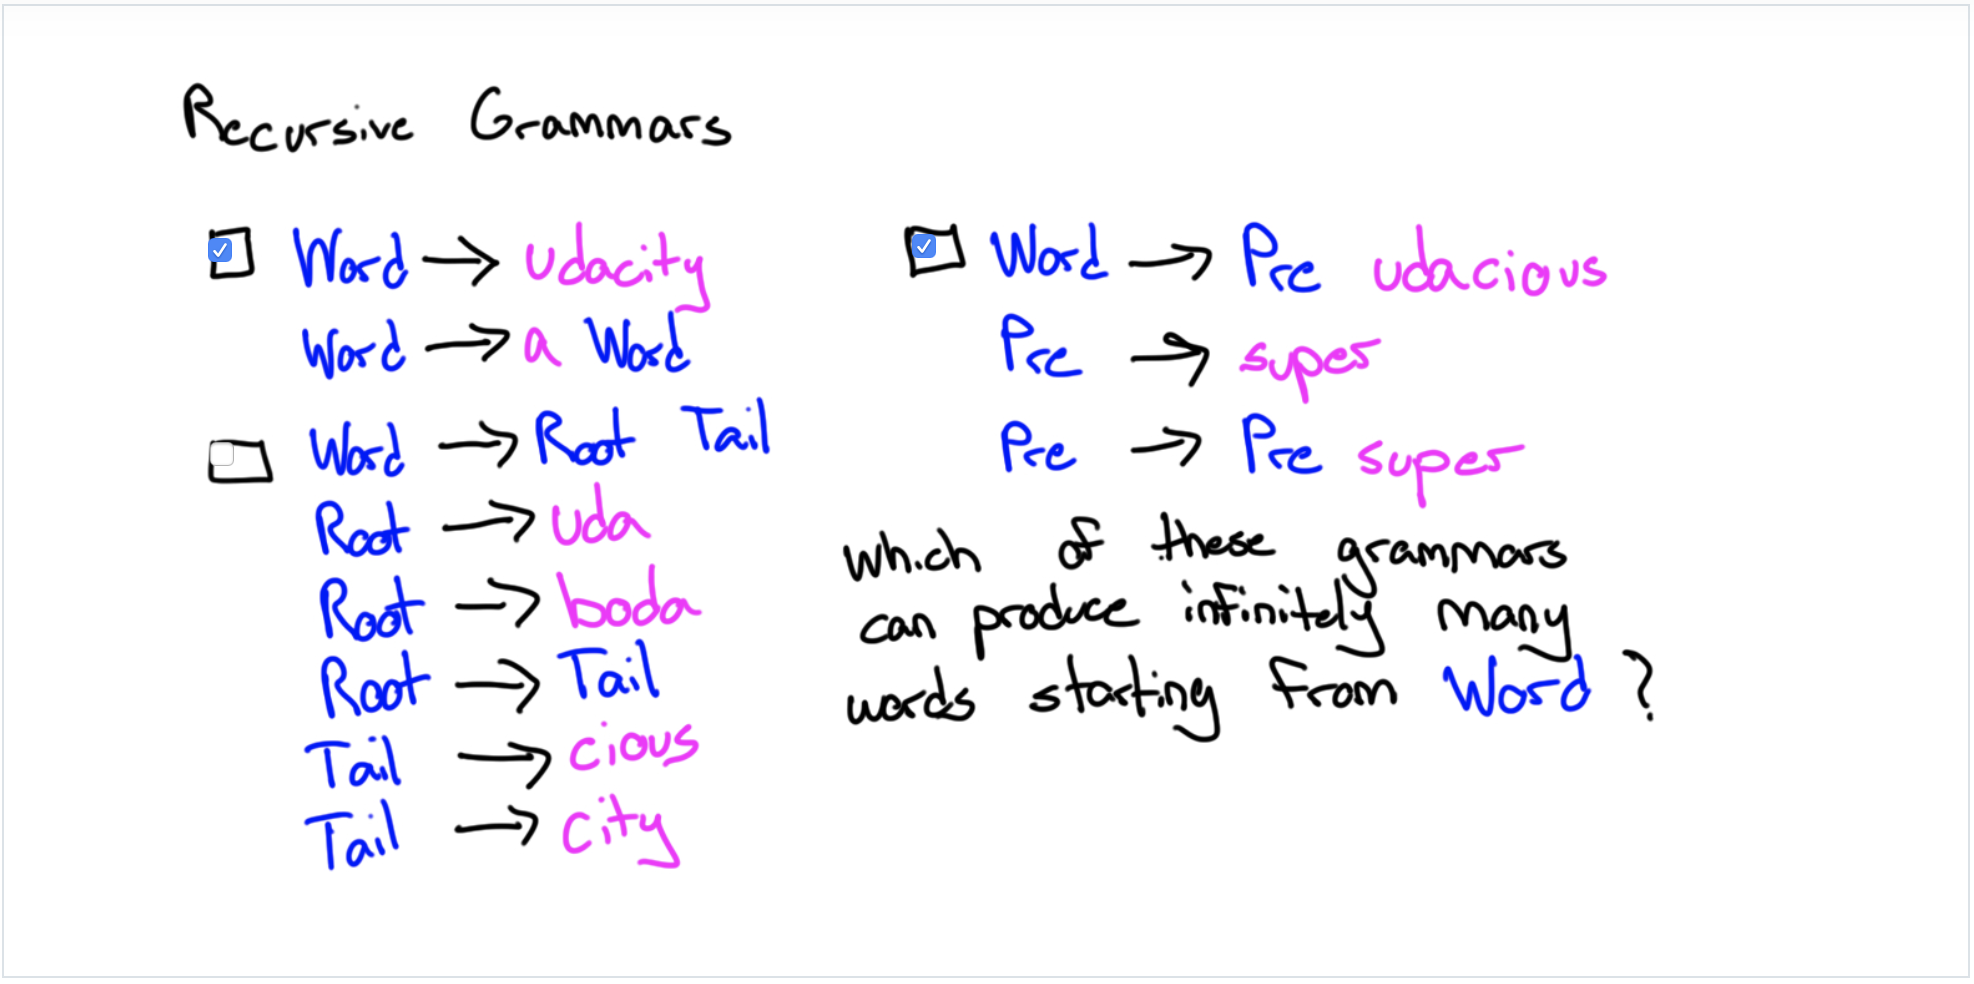 Recursive Grammars
Word → udacity
Word → a Word
Word → Root Tail
Root → uda
Root → boda
Root → Tail
Tail → cious
Tail → city
Word → Pre udacious
Pre → super
Pre → Pre super
Which of these grammars
can produce infinitely many
words starting from Word ?